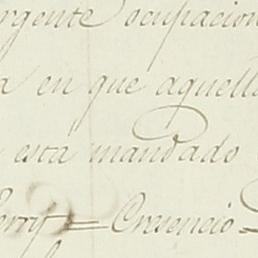 urgente ocupacion
a en que aquella
esta mandado
Perry = Cresencio =